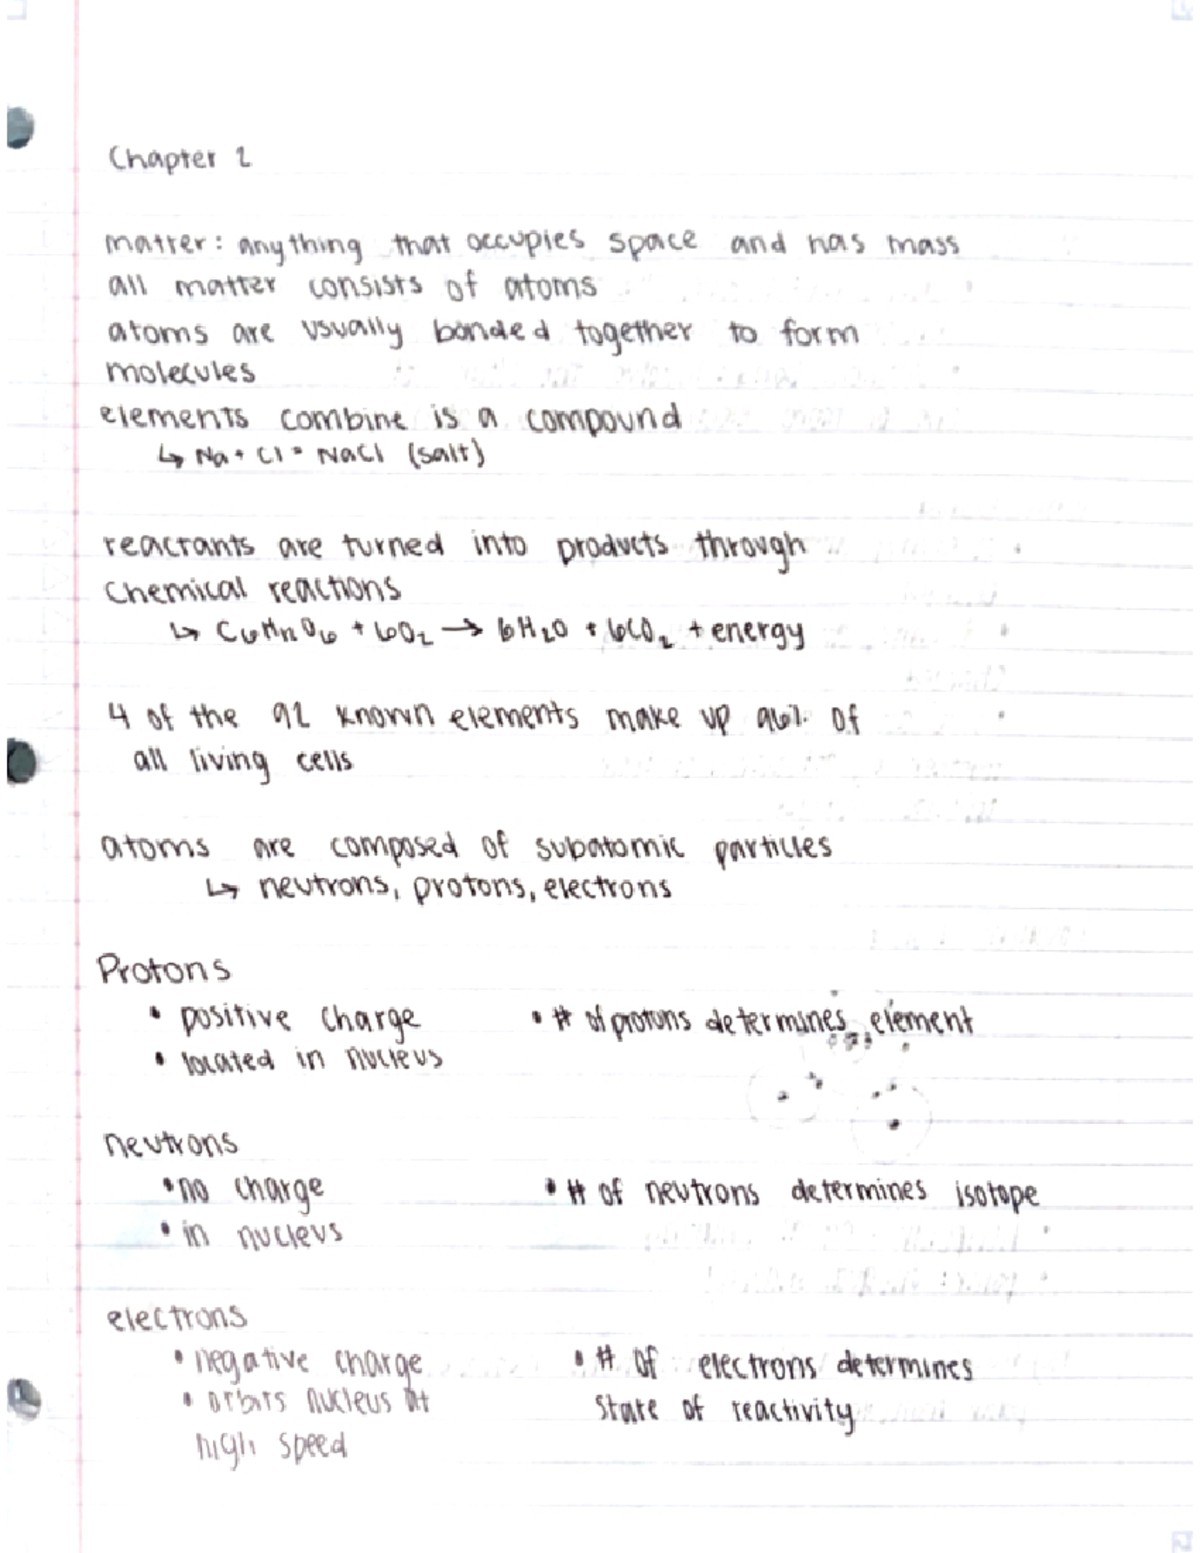 Chapter 2
matter: anything that occupies space and has mass
all matter consists of atoms
atoms are usually bonded together to form
molecules
elements combine is a compound
↳ Na + Cl = NaCl (salt)
reactants are turned into products through
Chemical reactions
↳ C6H12O6 + 6O2 → 6H2O + 6CO2 + energy
4 of the 92 known elements make up 96% of
all living cells
atoms are composed of subatomic particles
↳ neutrons, protons, electrons
Protons
• positive charge • # of protons determines element
• located in nucleus
neutrons
• no charge • # of neutrons determines isotope
• in nucleus
electrons
• negative charge • # of electrons determines
• orbits nucleus at state of reactivity
high speed